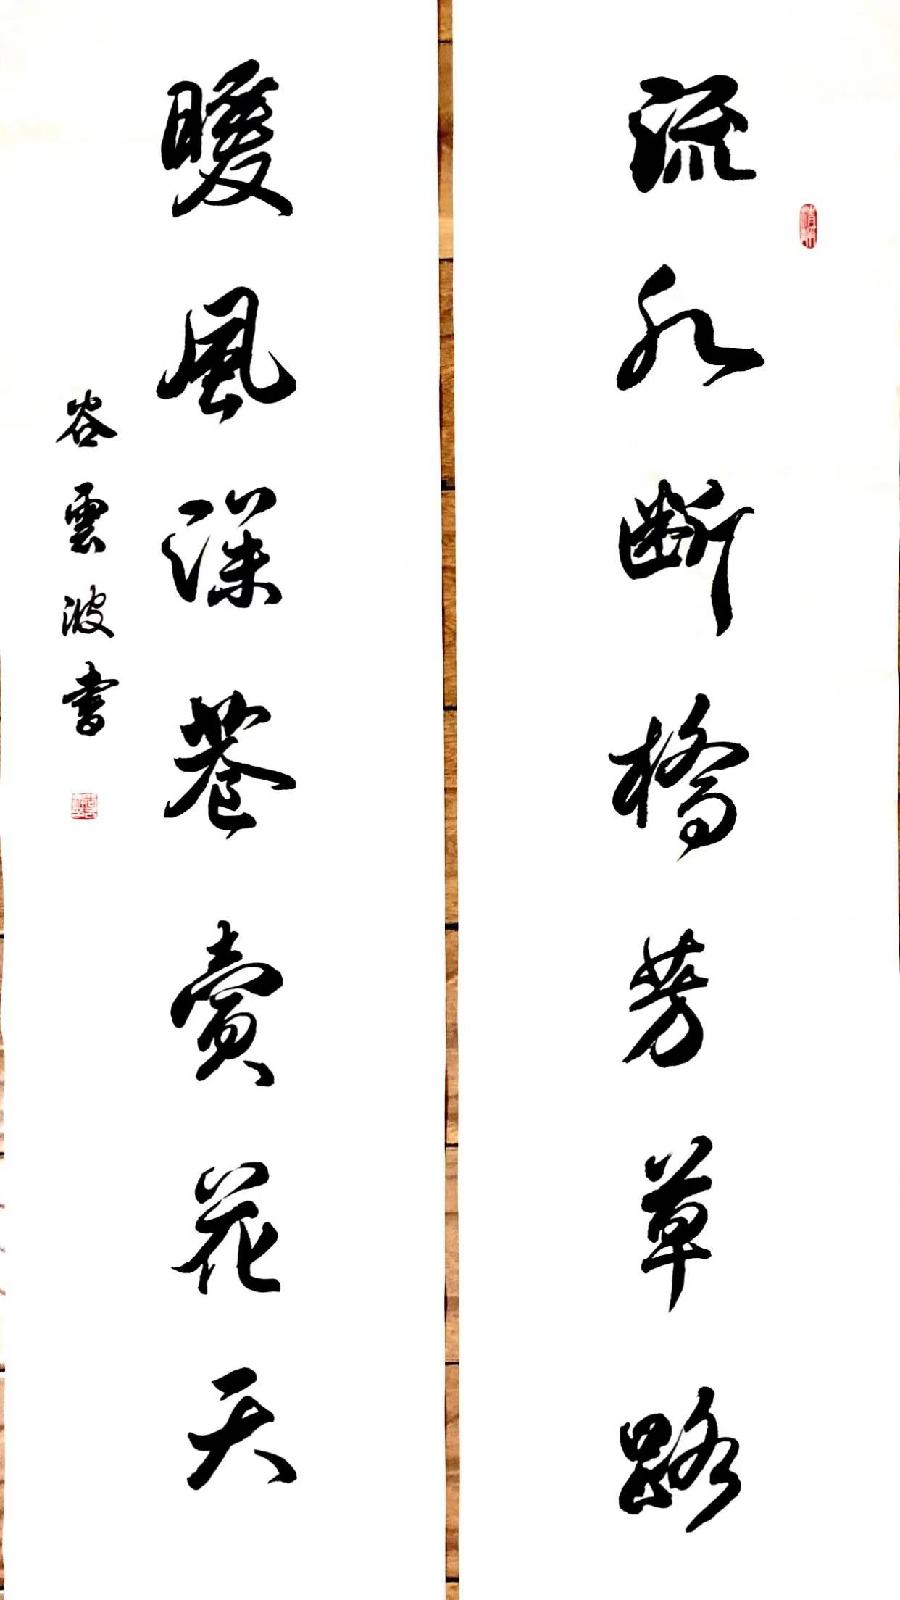 流水断橋芳草路
暖風深巷賣花天
谷雲波書